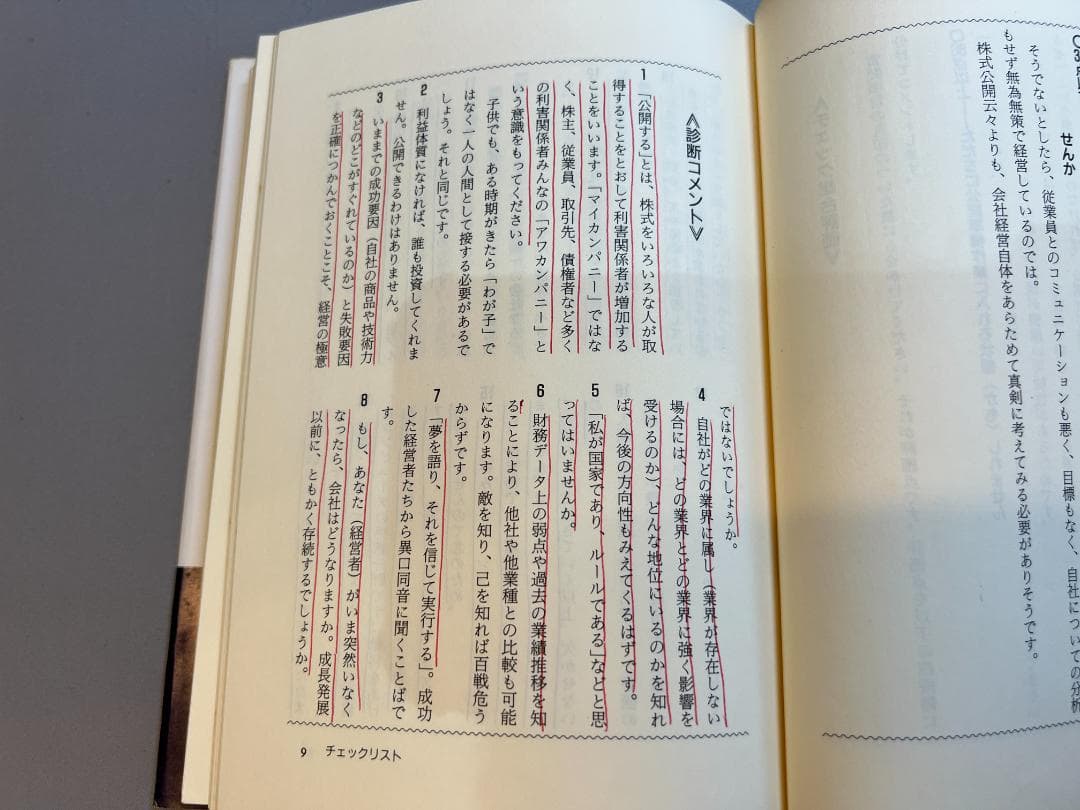 せんか
そうでないとしたら、従業員とのコミュニケーションも悪く、目標もなく、自社についての分析
もせず無為無策で経営しているのでは。
株式公開云々よりも、会社経営自体をあらためて真剣に考えてみる必要がありそうです。
《診断コメント》
1 「公開する」とは、株式をいろいろな人が取
得することをとおして利害関係者が増加する
ことをいいます。「マイカンパニー」ではな
く、株主、従業員、取引先、債権者など多く
の利害関係者みんなの「アワカンパニー」と
いう意識をもってください。
子供でも、ある時期がきたら「わが子」で
はなく一人の人間として接する必要があるで
しょう。それと同じです。
2 利益体質になければ、誰も投資してくれま
せん。公開できるわけはありません。
3 いままでの成功要因（自社の商品や技術力
などのどこがすぐれているのか）と失敗要因
を正確につかんでおくことこそ、経営の極意
ではないでしょうか。
4 自社がどの業界に属し（業界が存在しない
場合には、どの業界とどの業界に強く影響を
受けるのか）、どんな地位にいるのかを知れ
ば、今後の方向性もみえてくるはずです。
5 「私が国家であり、ルールである」などと思
ってはいませんか。
6 財務データ上の弱点や過去の業績推移を知
ることにより、他社や他業種との比較も可能
になります。敵を知り、己を知れば百戦危う
からずです。
7 「夢を語り、それを信じて実行する」。成功
した経営者たちから異口同音に聞くことばで
す。
8 もし、あなた（経営者）がいま突然いなく
なったら、会社はどうなりますか。成長発展
以前に、ともかく存続するでしょうか。
9 チェックリスト